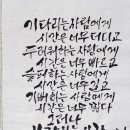 기다리는 사람에게
시간은 너무 더디고
두려워하는 사람에게
시간은 너무 빠르고
슬퍼하는 사람에게
시간은 너무 길고
기뻐하는 사람에게
시간은 너무 짧다
그러나
사랑하는